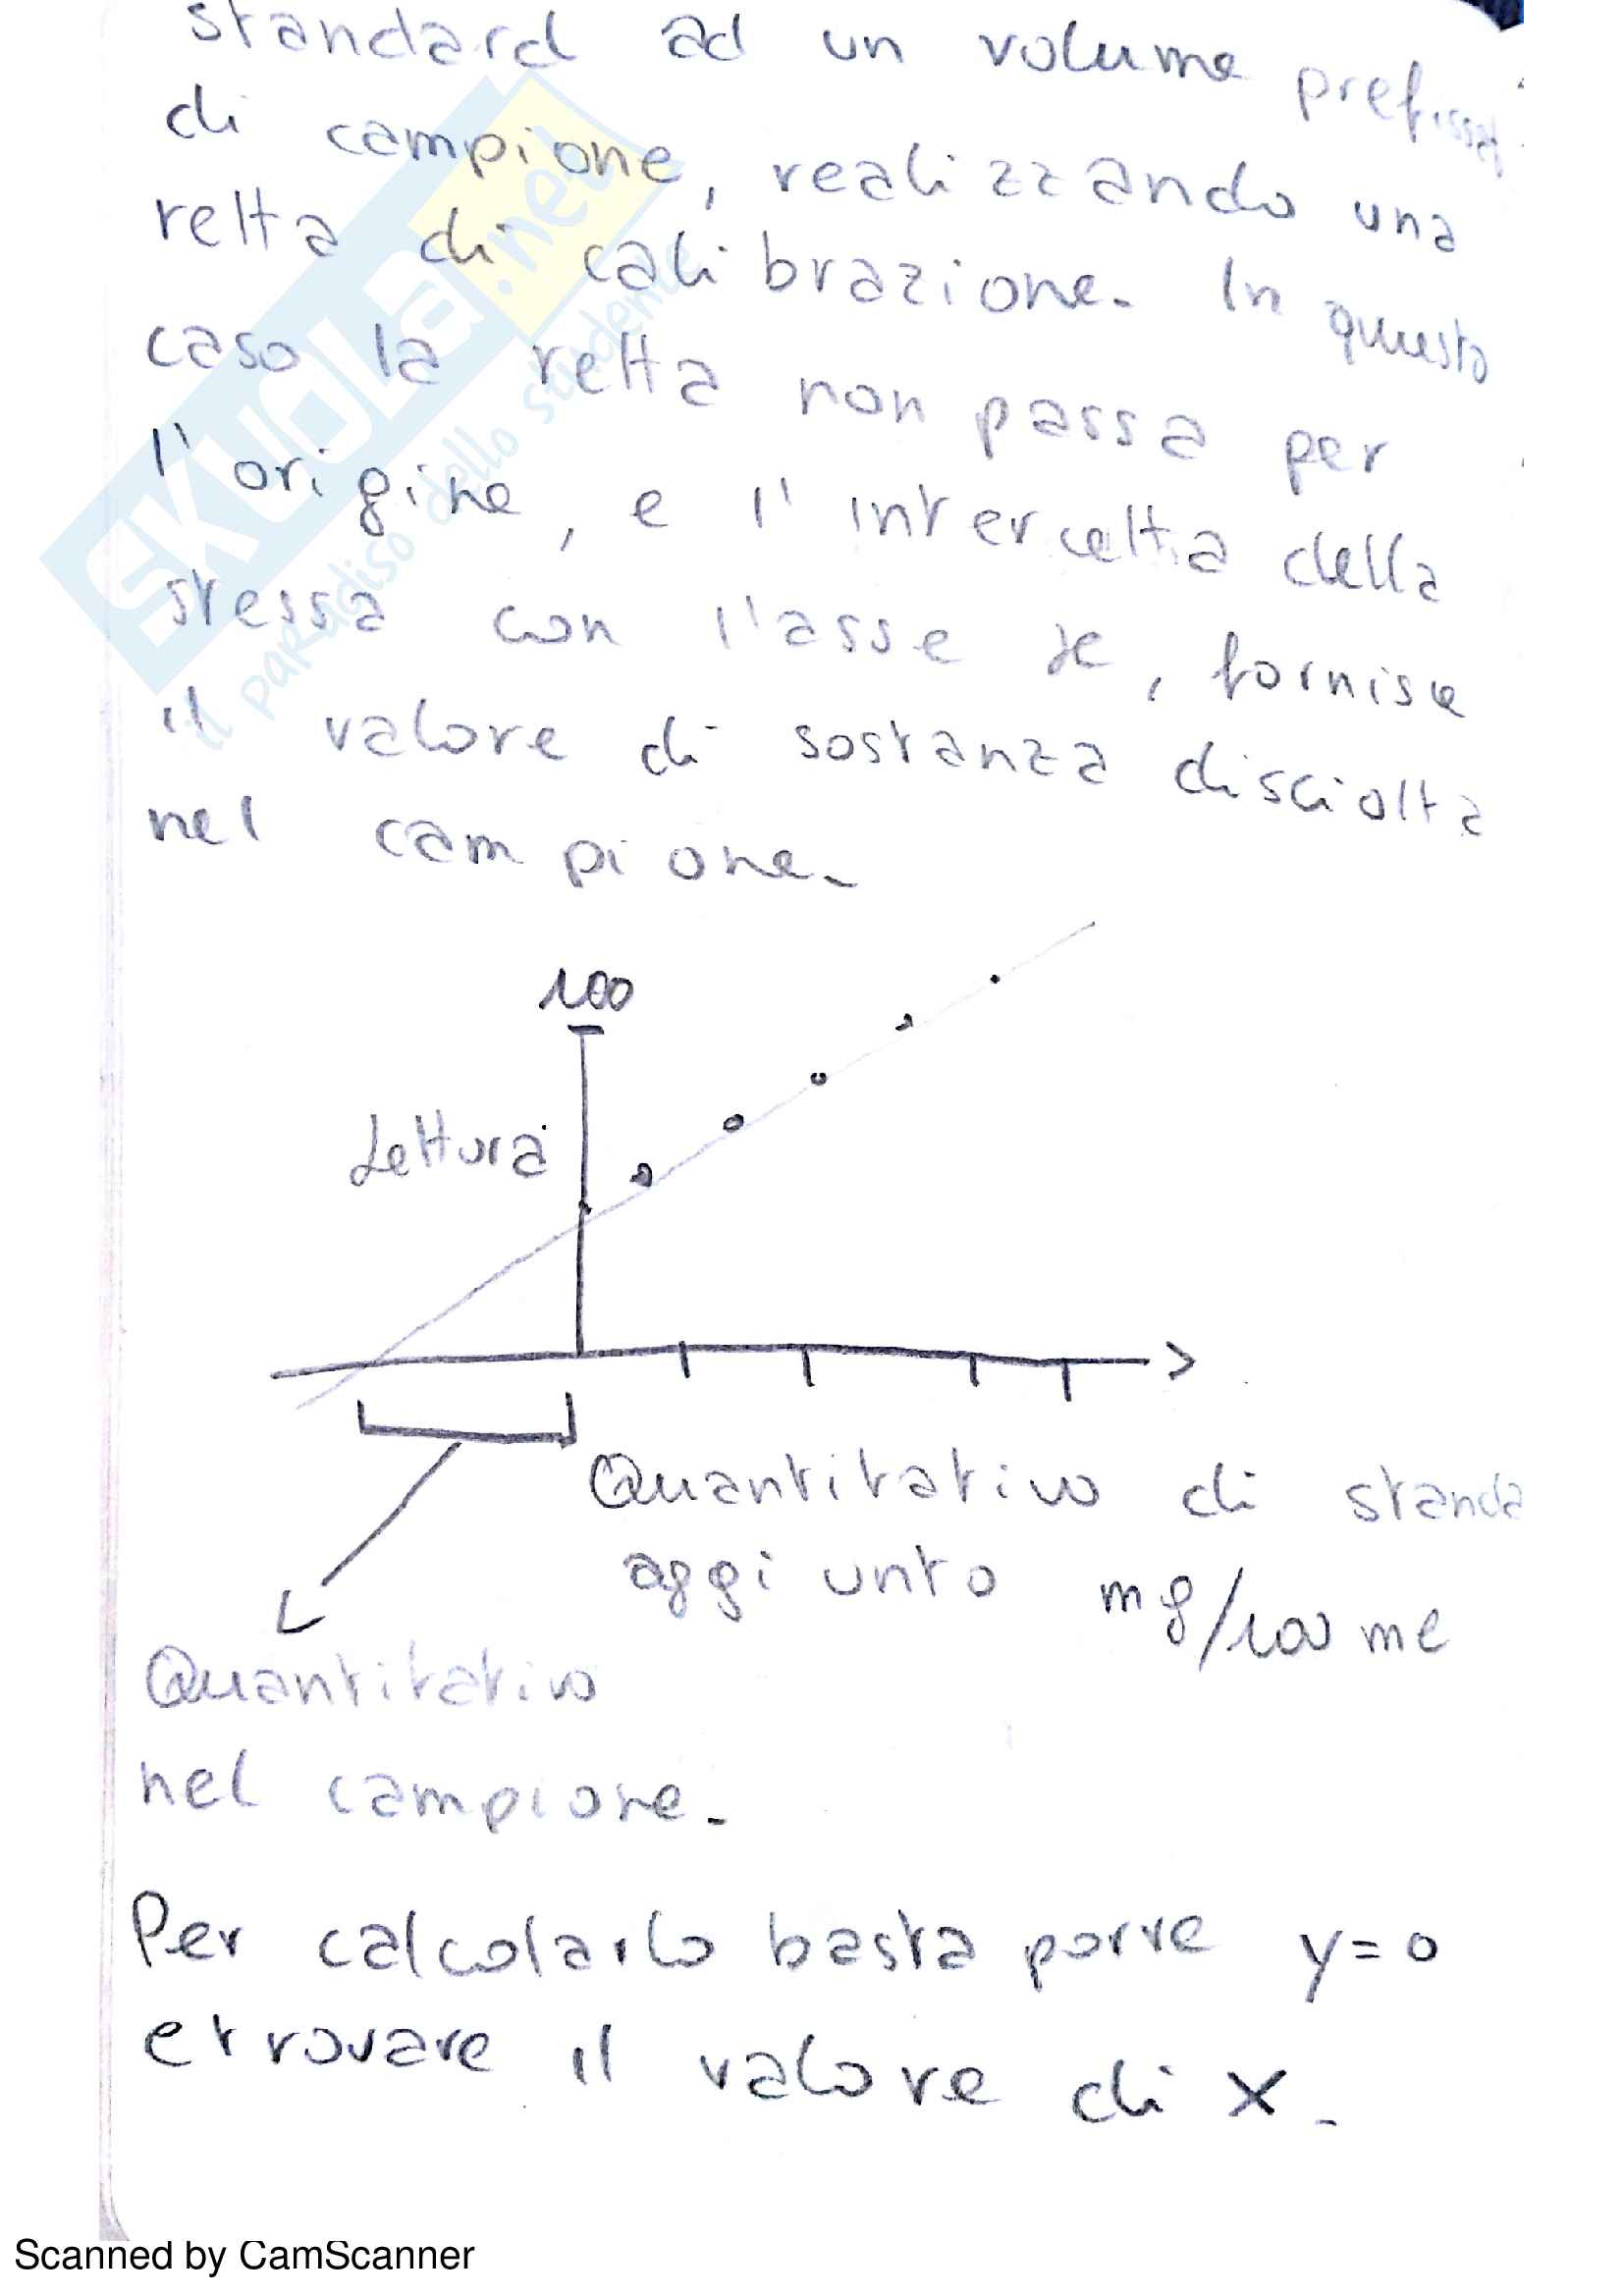 standard ad un volume prefissat
di campione, realizzando una
retta di calibrazione. In questo
caso la retta non passa per
l'origine, e l'intercetta della
stessa con l'asse x, fornisce
il valore di sostanza disciolta
nel campione.
100
Lettura
Quantitativo di standa
aggiunto mg/100 ml
Quantitativo
nel campione.
Per calcolarlo basta porre y=0
e trovare il valore di x.
SKUOLA.net
il paradiso dello studente
Scanned by CamScanner